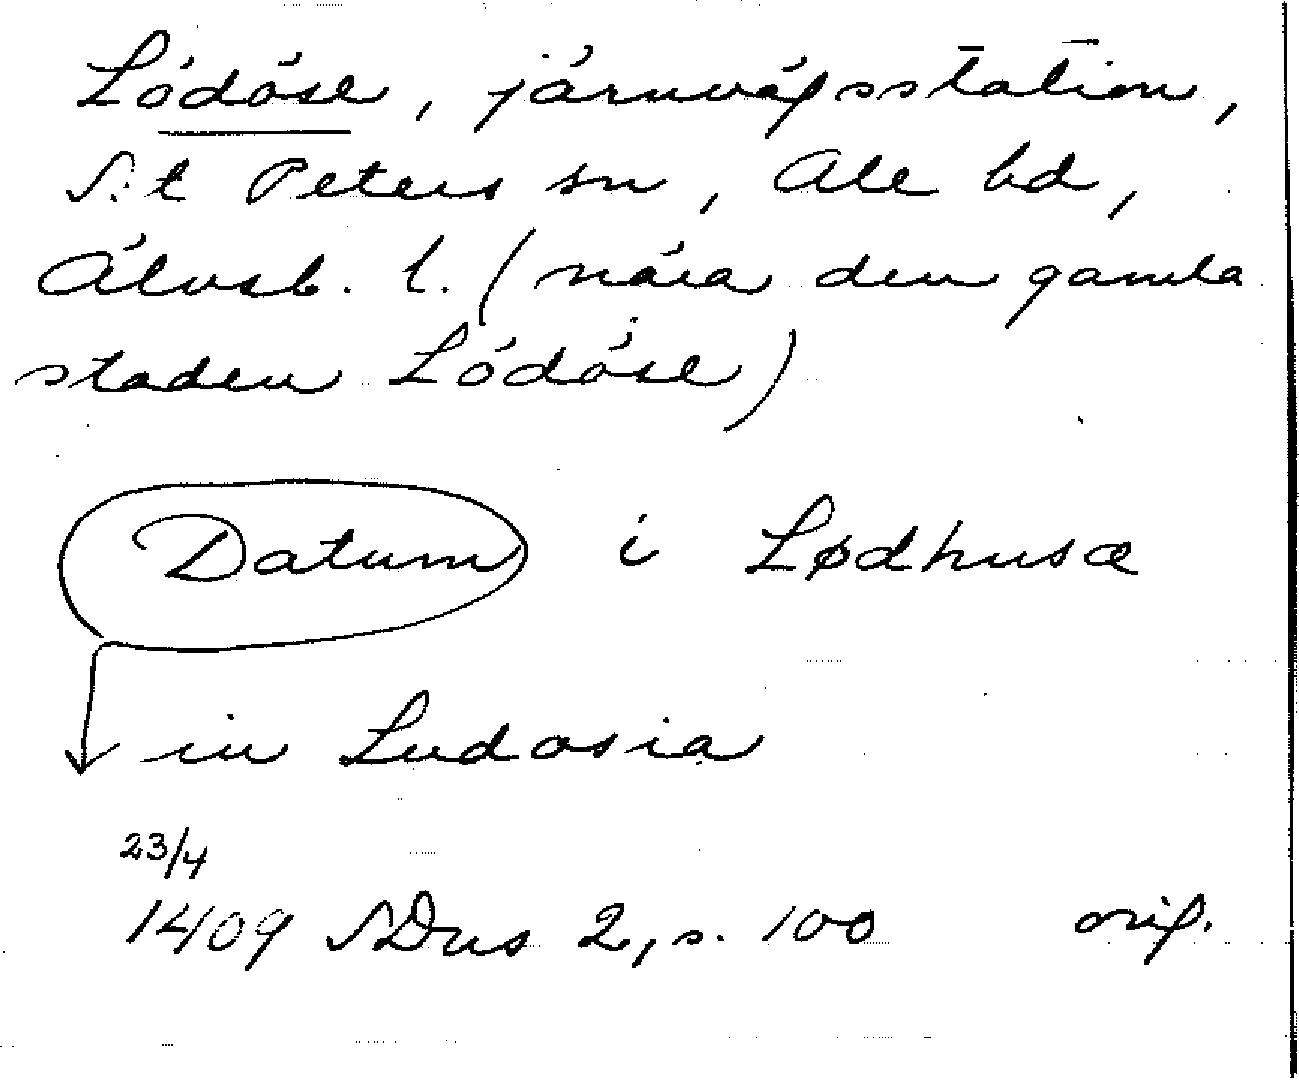 Lödöse, järnvägsstation,
S:t Peters sn, Ale hd,
Älvsb. l. (nära den gamla
staden Lödöse)
Datum i Lødhusæ
in Ludosia
23/4
1409 SDns 2, s. 100 orig.